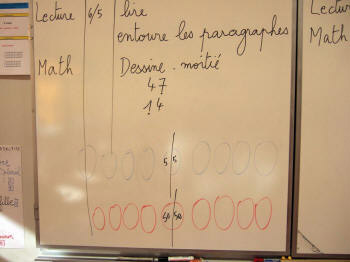 Lecture 6/5 lire
entoure les paragraphes
Math Dessine . moitié
47
14
5 5
Lectur
Math